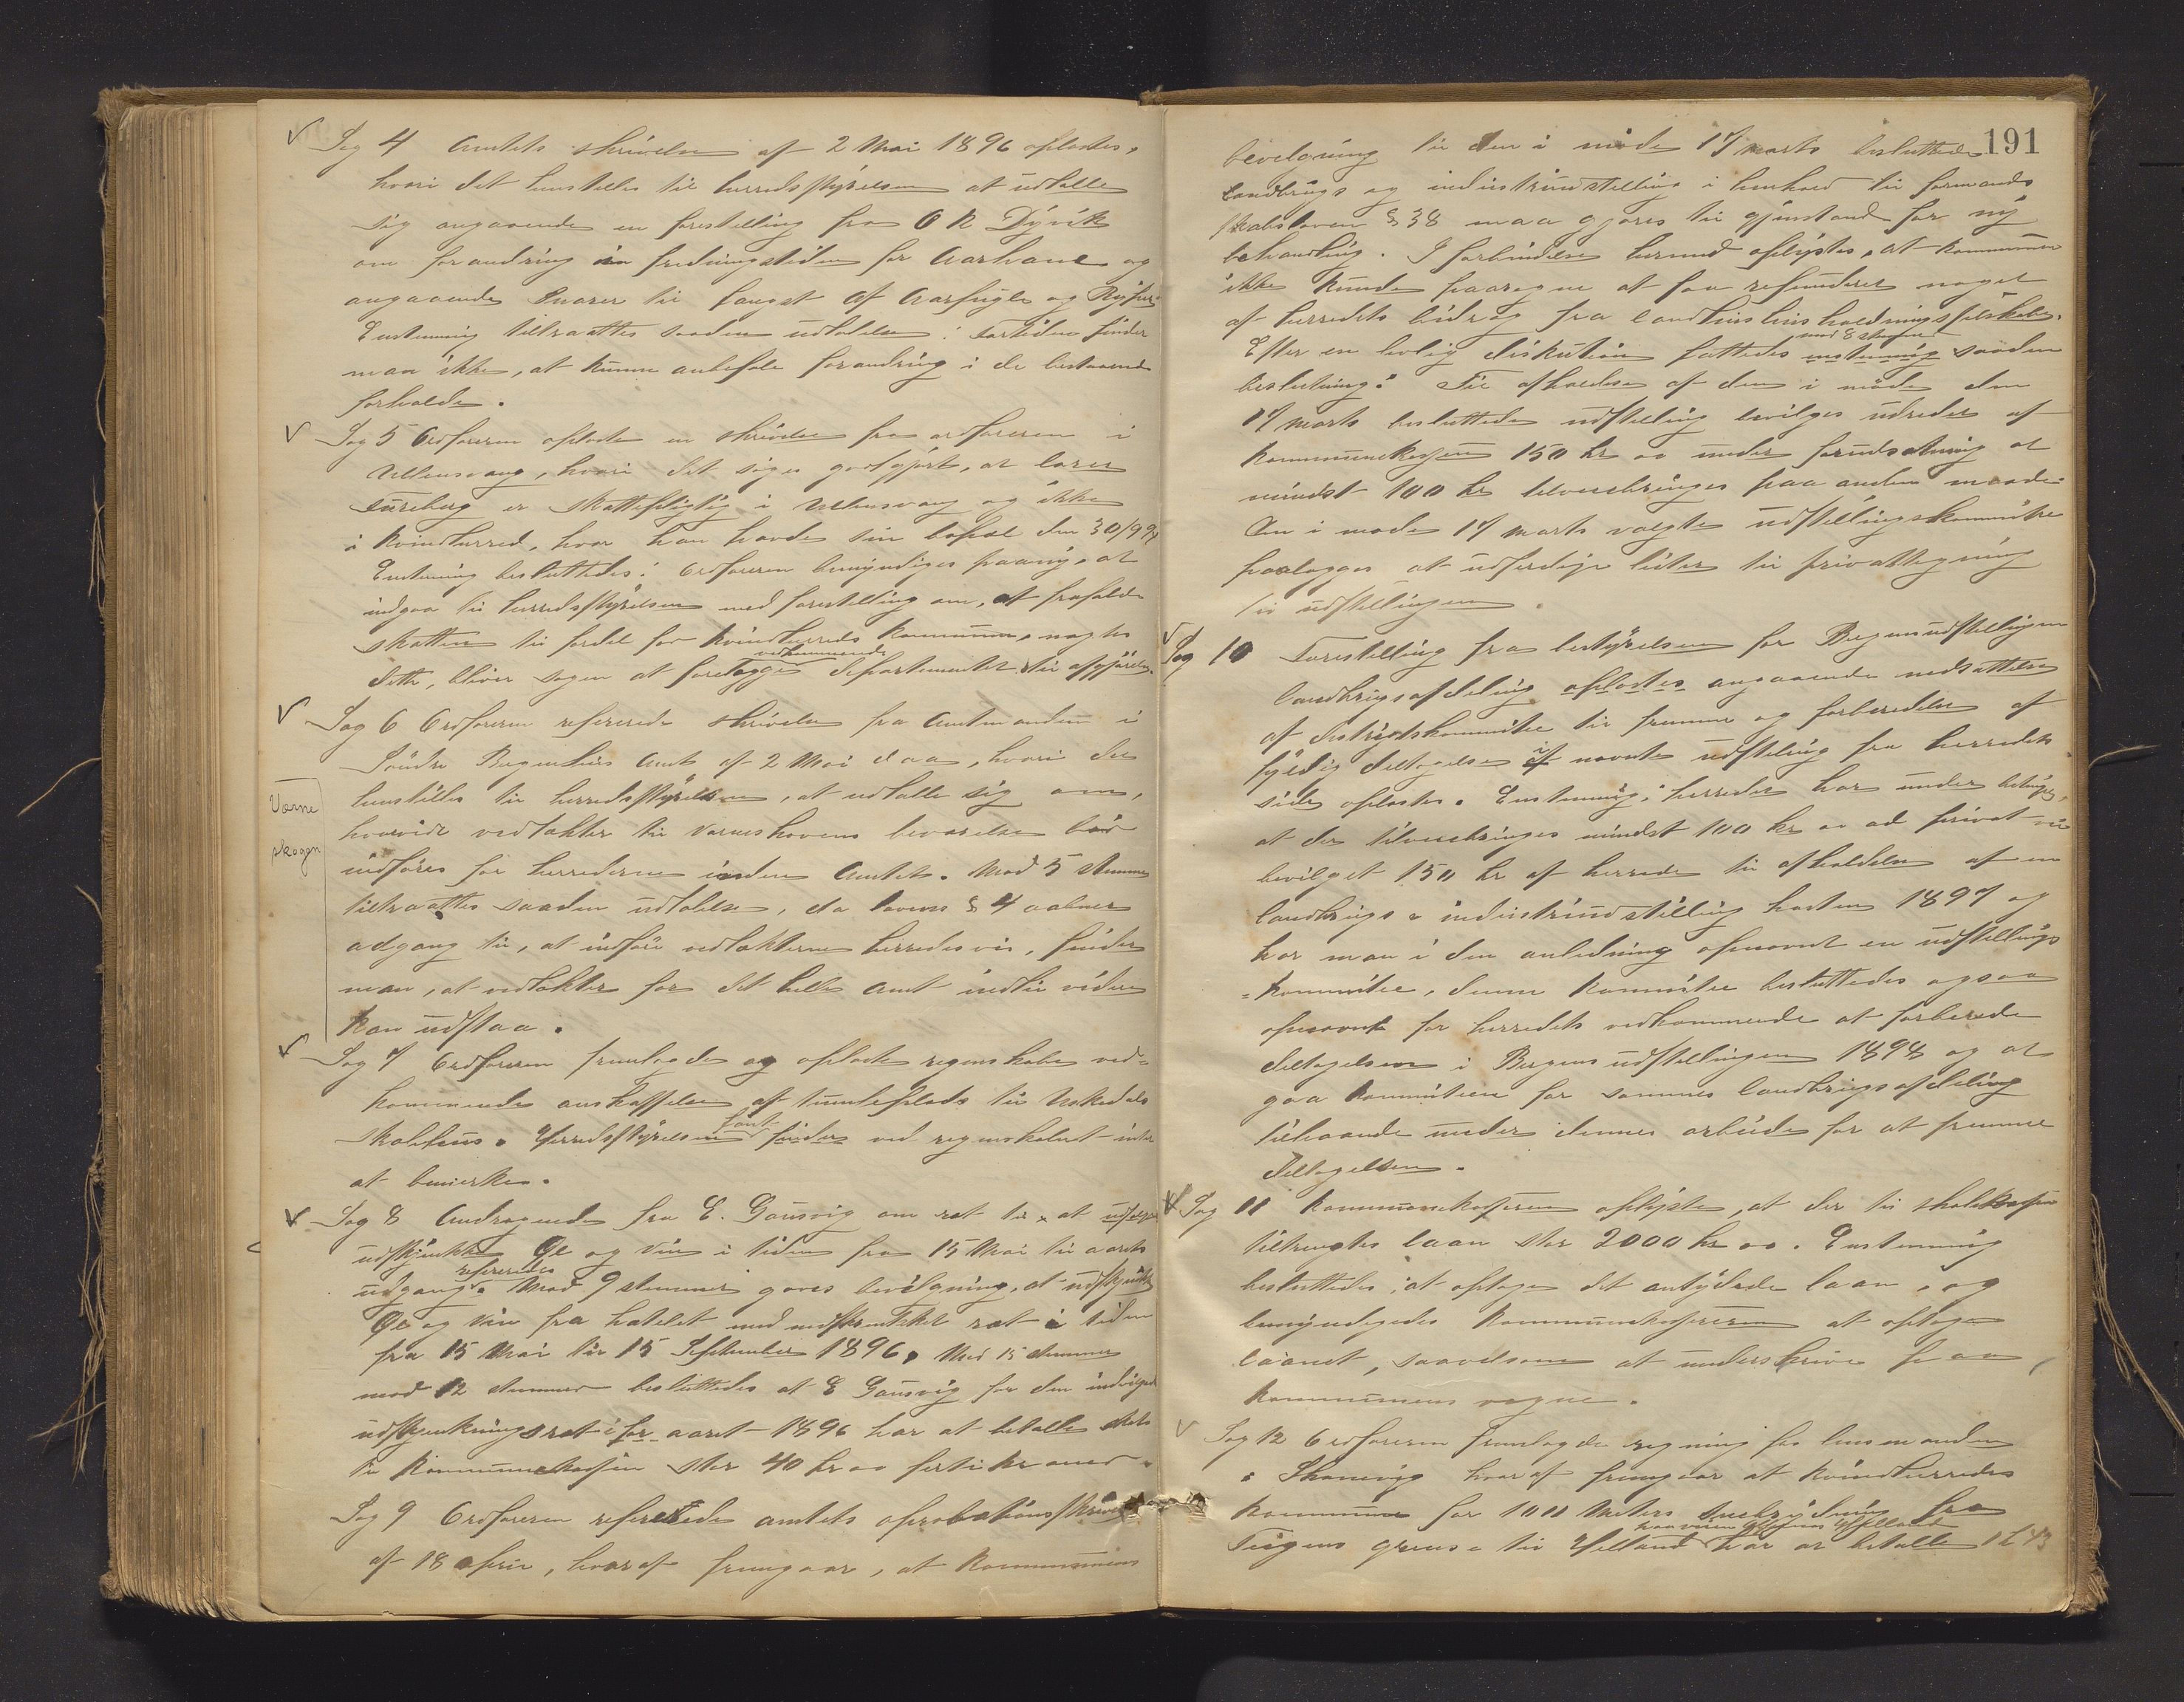 Sag 4 Amtets skrivelse af 2 Mai 1896 oplæstes,
hvori det henstilles til herredsstyrelsen at udtalle
sig angaaende en forestilling fra O N Dyvik
om forandring i fredningstiden for Aarhane og
angaaende Snarer til fangst af Aarfugle og Ryper
Enstemmig tiltraattes saadan udtalelse: Fortiden finder
man ikke, at kunne anbefale forandring i de bestaaende
forholde.
Sag 5 Ordføreren oplæste en skrivelse fra ordføreren i
Ullensvang, hvori det siges godtgjort, at lærer
er skattepligtig i Ullensvang og ikke
i Kvindherred, hvor han havde sin bopæl den 30/9 94
Enstemmig besluttedes: Ordføreren bemyndiges paany, at
indgaa til herredsstyrelsen med forestilling om, at frafalde
skatten til fordel for Kvindherreds kommune, nægtes
vedkommende
dette, bliver sagen at forelægges departementet til afgjørelse.
Sag 6 Ordføreren refererede skrivelse fra Amtmanden i
Søndre Bergenhus Amt af 2 Mai d aa, hvori det
Værne
skogen
henstilles til herredsstyrelsen, at udtalle sig om,
hvorvidt vedtækter til Værneskovens bevarelse bør
indføres for herrederne inden Amtet. Mod 5 stemmer
tiltraattes saadan udtalelse, da lovens § 4 aabner
adgang til, at indføre vedtækterne herredsvis, finder
man, at vedtækter for det helle Amt indtil videre
kan udstaa.
Sag 7 Ordføreren fremlagde og oplæste regnskabe ved-
kommende anskaffelsen af tomteplads til Uskedals
skolehus. Herredsstyrelsen
fant
finder ved regnskabet intet
at bemerke.
Sag 8 Andragende fra E. Gausvig om ret til, at
udskjænke Øl og Vin i tiden fra 15 Mai til aarets
refereredes
udgang. Mod 9 stemmer gaves bevilgning, at udskjænke
Øl og Vin fra hotelet med indskrænket ret i tiden
fra 15 Mai til 15 September 1896, Med 15 stemmer
mod 12 stemmer besluttedes at E Gausvig for den indvilgede
udskjenkningsret i for aaret 1896 har at betalle
til kommunekassen stor 40 kr oo førti kroner.
Sag 9 Ordføreren refererede amtets aprobationsskrivelse
af 18 april, hvoraf fremgaar, at kommunens
191
bevelgning til den i møde 17 marts besluttede
Landbrugs og industriudstelling i henhold til formands
skabsloven § 38 maa gjøres til gjenstand for ny
behandling. I forbindelse hermed oplystes, at kommunen
ikke kunde paaregne at faa refunderet noget
af herredets bidrag fra landhusholdningsselskabet.
med 8 stemmer
Efter en livlig diskution fattedes enstemmig saadan
beslutning: Til afholdelse af den i møde den
17 marts besluttede udstelling bevilges udredet af
kommunekassen 150 kr oo under forudsætning at
mindst 100 kr tilveiebringes paa anden maade:
Den i møde 17 marts valgte udstellingskommitee
paalægges at udferdige lister til privattegning
til udstellingen.
Sag 10 Forestilling fra bestyrelsen for Bergensudstellingens
landbrugsafdeling oplæstes angaaende nedsættelse
af distriktskommitee til fremme og forberedelse af
fyldig deltagelse i nævnte udstelling fra herredets
side oplæstes. Enstemmig: herredet har under betingelse,
at der tilveiebringes mindst 100 kr oo ad privat vei
bevilget 150 kr af herredet til afholdelse af en
landbrugs & industriudstilling høsten 1897 og
har man i den anledning opnævnt en udstellings
=kommitee, denne kommitee besluttedes ogsaa
opnævnt for herredets vedkommende at forberede
deltagelsen i Bergensudstellingen 1898 og at
gaa kommiteen for sammes landbrugsafdeling
tilhaande under dennes arbeide for at fremme
deltagelsen.
Sag 11 Kommunekassereren oplyste, at der til skolekassen
tiltrengtes laan stor 2000 kr oo. Enstemmig
besluttedes: at optage det antydede laan, og
bemyndigedes kommunekassereren at optage
laanet, saavelsom at underskrive paa
kommunens vegne.
Sag 12 Ordføreren fremlagde regning fra lensmanden
i Skonevig hvoraf fremgaar at Kvindherreds
kommune for 1000 meters fra
Teigens grense til Helland har at betalle